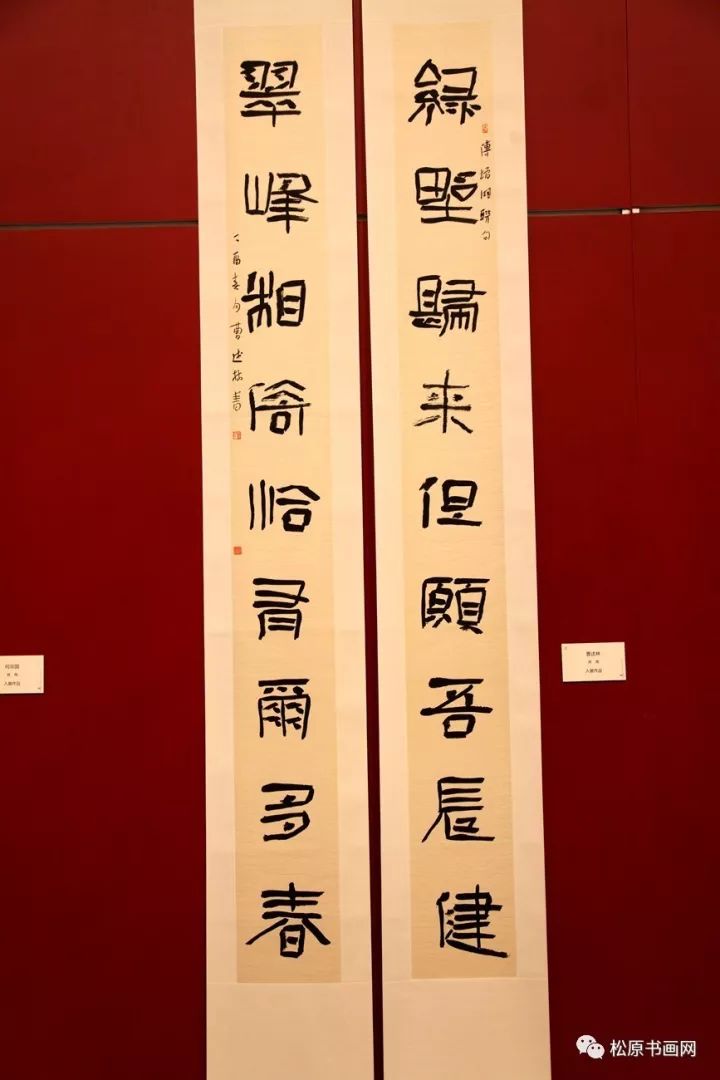 綠野歸來但願吾長健
傅增湘聯句
翠峰相倚恰有爾多春
丁酉春月曹述林書
曹述林
入展作品
入展作品
松原书画网